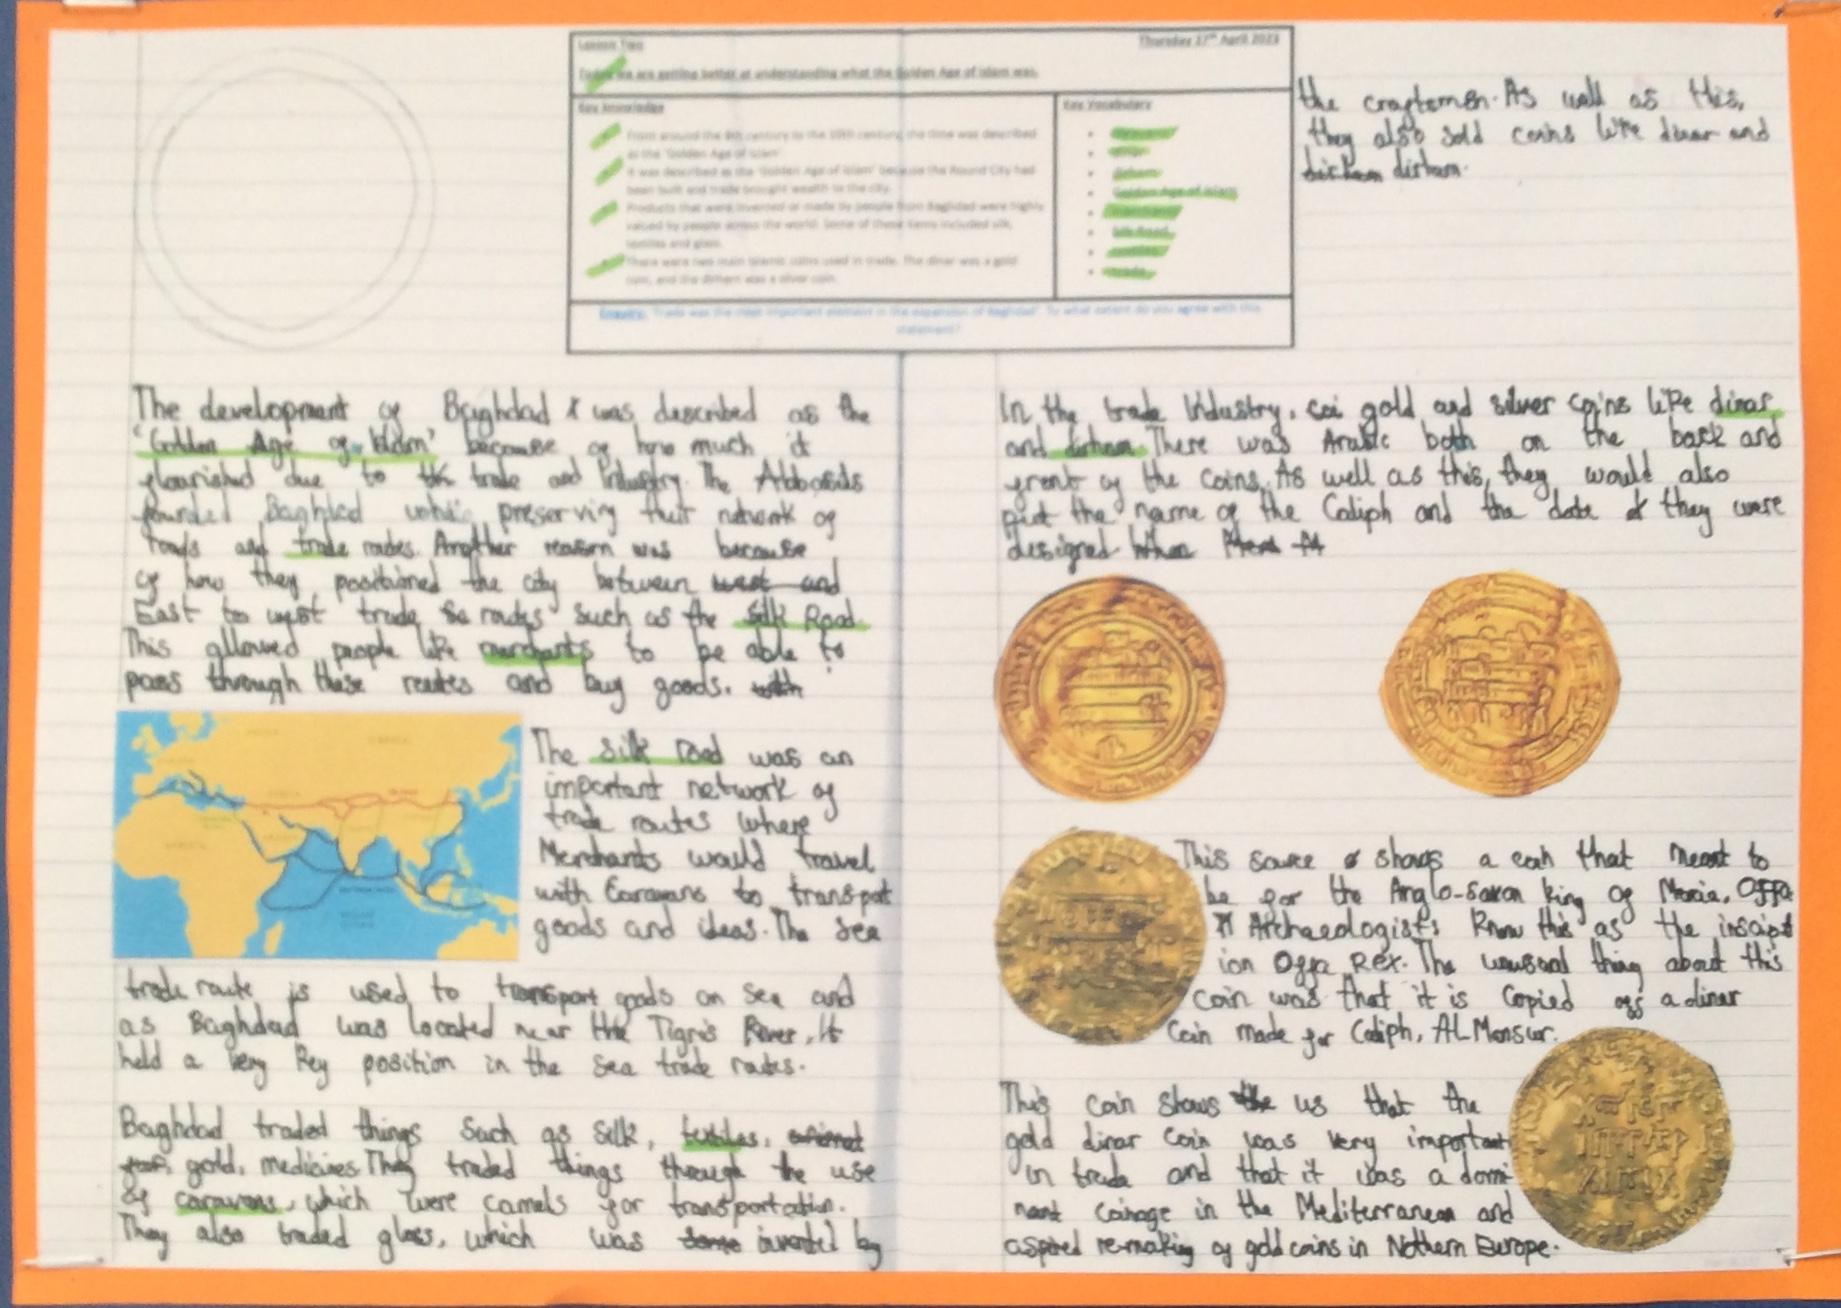 Lesson Two
Thursday 27th April 2023
Today we are getting better at understanding what the Golden Age of Islam was.
Key Knowledge
From around the 8th century to the 10th century, the time was described
as the 'Golden Age of Islam'.
It was described as the 'Golden Age of Islam' because the Round City had
been built and trade brought wealth to the city.
Products that were invented or made by people from Baghdad were highly
valued by people across the world. Some of these items included silk,
textiles and glass.
There were two main Islamic coins used in trade. The dinar was a gold
coin, and the dirham was a silver coin.
Key Vocabulary
dirham
Golden Age of Islam
merchant
Silk Road
textiles
trade
Enquiry: 'Trade was the most important element in the expansion of Baghdad'. To what extent do you agree with this
statement?
The development of Baghdad was described as the
'Golden Age of Islam' because of how much it
flourished due to trade and Industry. The Abbasids
founded Baghdad while preserving their network of
roads and trade routes. Another reason was because
of how they positioned the city between west and
East to west trade routes such as the Silk Road.
This allowed people like merchants to be able to
pass through these routes and buy goods. with
The silk road was an
important network of
trade routes where
Merchants would travel
with Caravans to transport
goods and ideas. The sea
trade route is used to transport goods on sea and
as Baghdad was located near the Tigris River, It
held a very key position in the sea trade routes.
Baghdad traded things such as silk, textiles,
gold, medicines. They traded things through the use
of caravans, which were camels for transportation.
They also traded glass, which was some invented by
the craftsmen. As well as this,
they also sold coins like dinar and
dirham.
In the trade Industry, coi gold and silver coins like dinar
and dirham. There was Arabic both on the back and
front of the coins. As well as this, they would also
put the name of the Caliph and the date they were
designed.
This source shows a coin that meant to
be for the Anglo-saxon king of Mercia, Offa.
Archaeologists know this as the inscript
ion Offa Rex. The unusual thing about this
coin was that it is copied off a dinar
Coin made for Caliph, AL-Mansur.
This coin shows the us that the
gold dinar coin was very important
in trade and that it was a domi
nant coinage in the Mediterranean and
aspired re-making of gold coins in Nothern Europe.